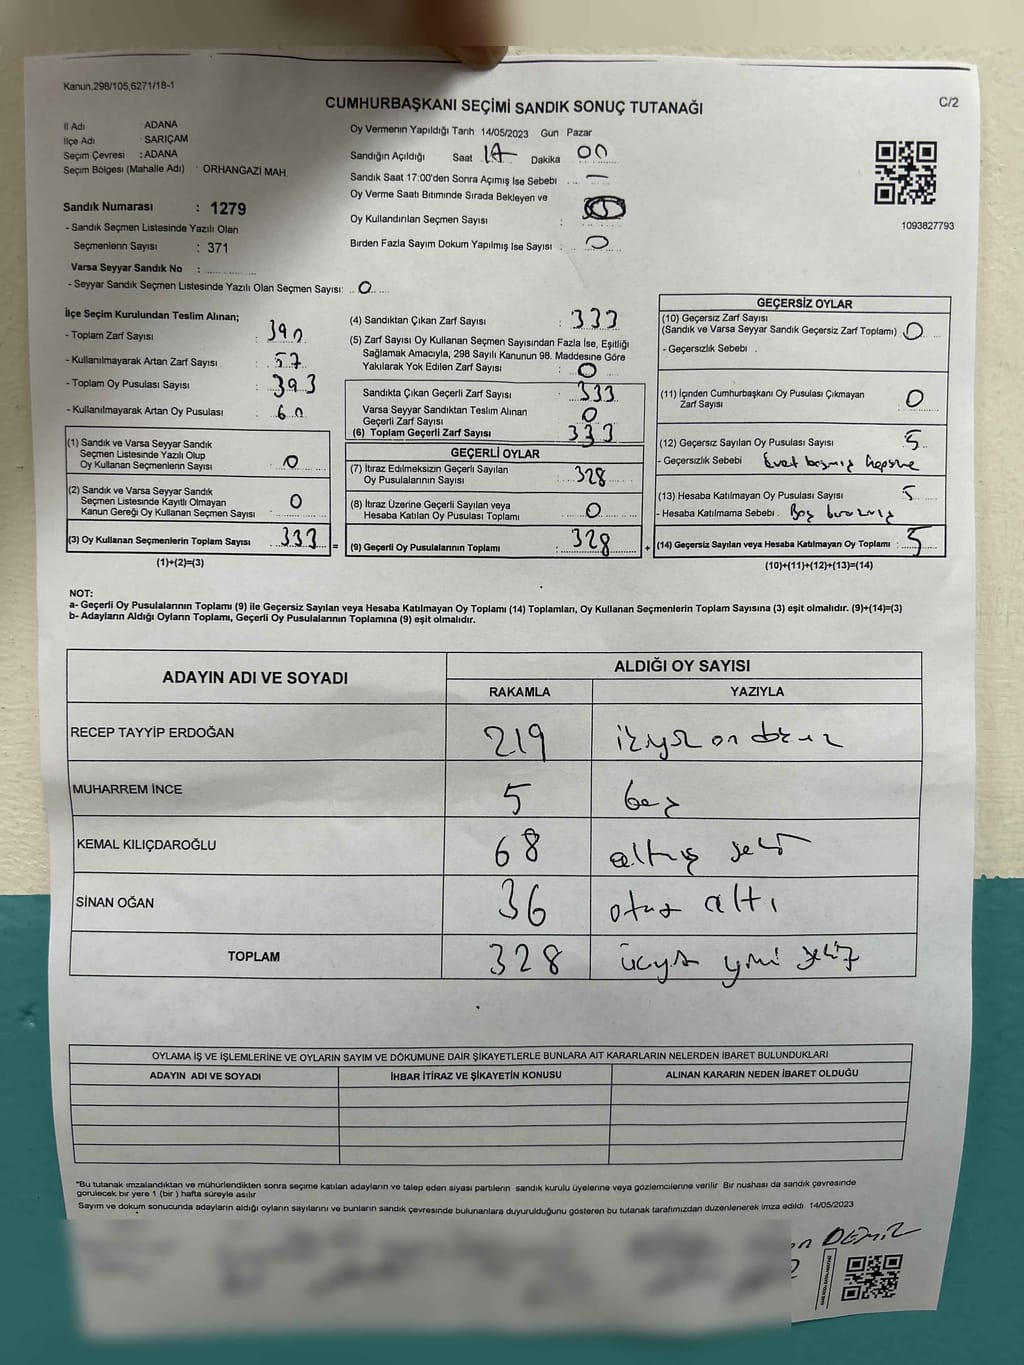 Kanun,298/105,6271/18-1
CUMHURBAŞKANI SEÇİMİ SANDIK SONUÇ TUTANAĞI
C/2
İl Adı ADANA
İlçe Adı SARIÇAM
Seçim Çevresi : ADANA
Seçim Bölgesi (Mahalle Adı) : ORHANGAZİ MAH.
Sandık Numarası : 1279
- Sandık Seçmen Listesinde Yazılı Olan
Seçmenlerin Sayısı : 371
Varsa Seyyar Sandık No :
- Seyyar Sandık Seçmen Listesinde Yazılı Olan Seçmen Sayısı: 0
Oy Vermenin Yapıldığı Tarih 14/05/2023 Gün Pazar
Sandığın Açıldığı Saat 17 Dakika 00
Sandık Saat 17:00'den Sonra Açımış İse Sebebi —
Oy Verme Saati Bitiminde Sırada Bekleyen ve
Oy Kullandırılan Seçmen Sayısı :
Birden Fazla Sayım Döküm Yapılmış İse Sayısı : 0
1093827793
İlçe Seçim Kurulundan Teslim Alınan;
- Toplam Zarf Sayısı : 390
- Kullanılmayarak Artan Zarf Sayısı : 57
- Toplam Oy Pusulası Sayısı : 393
- Kullanılmayarak Artan Oy Pusulası : 60
(1) Sandık ve Varsa Seyyar Sandık
Seçmen Listesinde Yazılı Olup
Oy Kullanan Seçmenlerin Sayısı : 0
(2) Sandık ve Varsa Seyyar Sandık
Seçmen Listesinde Kayıtlı Olmayan
Kanun Gereği Oy Kullanan Seçmen Sayısı : 0
(3) Oy Kullanan Seçmenlerin Toplam Sayısı : 333
(1)+(2)=(3)
(4) Sandıktan Çıkan Zarf Sayısı : 333
(5) Zarf Sayısı Oy Kullanan Seçmen Sayısından Fazla İse, Eşitliği
Sağlamak Amacıyla, 298 Sayılı Kanunun 98. Maddesine Göre
Yakılarak Yok Edilen Zarf Sayısı : 0
Sandıkta Çıkan Geçerli Zarf Sayısı : 333
Varsa Seyyar Sandıktan Teslim Alınan
Geçerli Zarf Sayısı : 0
(6) Toplam Geçerli Zarf Sayısı : 333
GEÇERLİ OYLAR
(7) İtiraz Edilmeksizin Geçerli Sayılan
Oy Pusulalarının Sayısı : 328
(8) İtiraz Üzerine Geçerli Sayılan veya
Hesaba Katılan Oy Pusulası Toplamı : 0
= (9) Geçerli Oy Pusulalarının Toplamı : 328 +
GEÇERSİZ OYLAR
(10) Geçersiz Zarf Sayısı
(Sandık ve Varsa Seyyar Sandık Geçersiz Zarf Toplamı) : 0
- Geçersizlik Sebebi .
(11) İçinden Cumhurbaşkanı Oy Pusulası Çıkmayan
Zarf Sayısı : 0
(12) Geçersiz Sayılan Oy Pusulası Sayısı : 5
- Geçersizlik Sebebi : Evet
(13) Hesaba Katılmayan Oy Pusulası Sayısı : 5
- Hesaba Katılmama Sebebi . Boş
(14) Geçersiz Sayılan veya Hesaba Katılmayan Oy Toplamı : 5
(10)+(11)+(12)+(13)=(14)
NOT:
a- Geçerli Oy Pusulalarının Toplamı (9) ile Geçersiz Sayılan veya Hesaba Katılmayan Oy Toplamı (14) Toplamları, Oy Kullanan Seçmenlerin Toplam Sayısına (3) eşit olmalıdır. (9)+(14)=(3)
b- Adayların Aldığı Oyların Toplamı, Geçerli Oy Pusulalarının Toplamına (9) eşit olmalıdır.
ADAYIN ADI VE SOYADI ALDIĞI OY SAYISI
RAKAMLA YAZIYLA
RECEP TAYYİP ERDOĞAN 219 ikiyüz on dokuz
MUHARREM İNCE 5 beş
KEMAL KILIÇDAROĞLU 68 altmış sekiz
SİNAN OĞAN 36 otuz altı
TOPLAM 328 üçyüz yirmi sekiz
OYLAMA İŞ VE İŞLEMLERİNE VE OYLARIN SAYIM VE DÖKÜMÜNE DAİR ŞİKAYETLERLE BUNLARA AİT KARARLARIN NELERDEN İBARET BULUNDUKLARI
ADAYIN ADI VE SOYADI İHBAR İTİRAZ VE ŞİKAYETİN KONUSU ALINAN KARARIN NEDEN İBARET OLDUĞU
*Bu tutanak imzalandıktan ve mühürlendikten sonra seçime katılan adayların ve talep eden siyasi partilerin sandık kurulu üyelerine veya gözlemcilerine verilir Bir nushası da sandık çevresinde
görülecek bir yere 1 (bir ) hafta süreyle asılır
Sayım ve döküm sonucunda adayların aldığı oyların sayılarını ve bunların sandık çevresinde bulunanlara duyurulduğunu gösteren bu tutanak tarafımızdan düzenlenerek imza edildi 14/05/2023
DEMİR